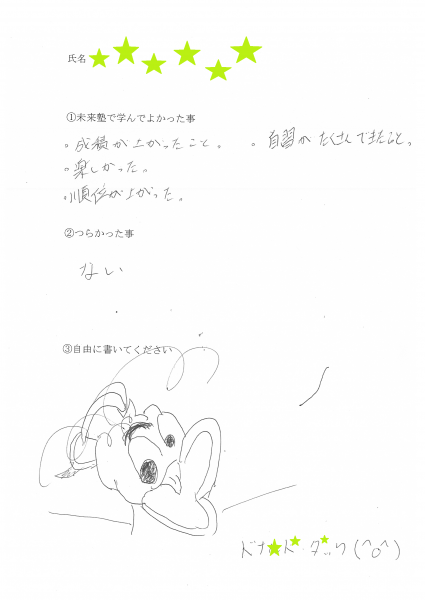 氏名
①未来塾で学んでよかった事
。成績が上がったこと。 。自習が たくさんできたこと。
。楽しかった。
・順位が上がった。
②つらかった事
ない
③自由に書いてください
ドナ ド ダック (^o^)